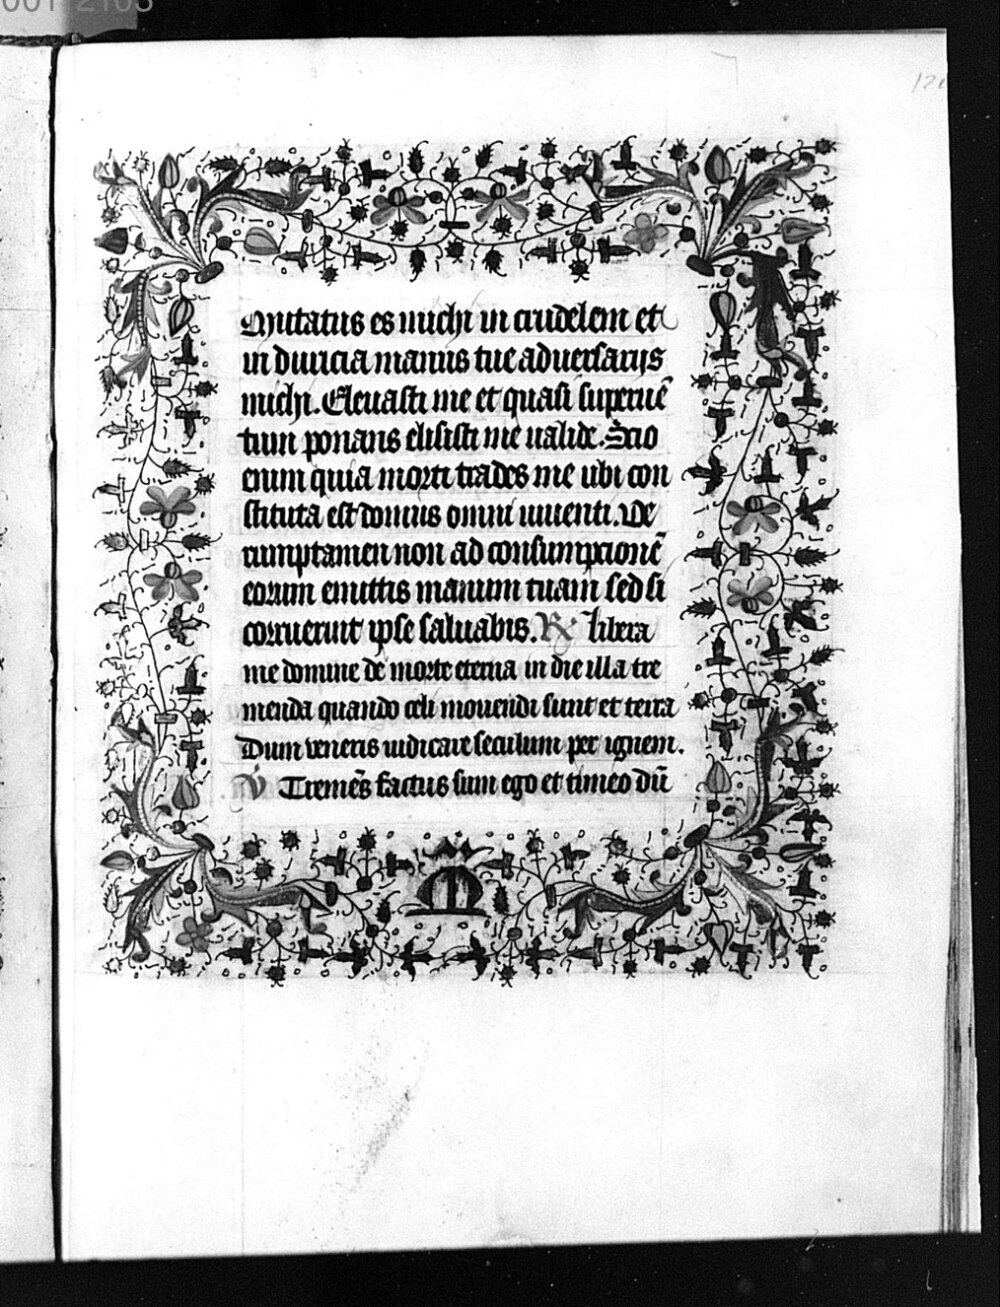 00172103
121
Mutatus es michi in crudelem et
in duricia manus tue aduersarijs
michi. Eleuasti me et quasi super uē
tum ponans elisisti me ualide. Scio
enim quia morti trades me ubi con
stituta est domus omni uiuenti. Ve
rumptamen non ad consumpcionē
eorum emittis manum tuam sed si
corruerint ipse saluabis. ℟ Libera
me domine de morte eterna in die illa tre
menda quando celi mouendi sunt et terra
Dum veneris iudicare seculum per ignem.
℣ Tremēs factus sum ego et timeo dū
M